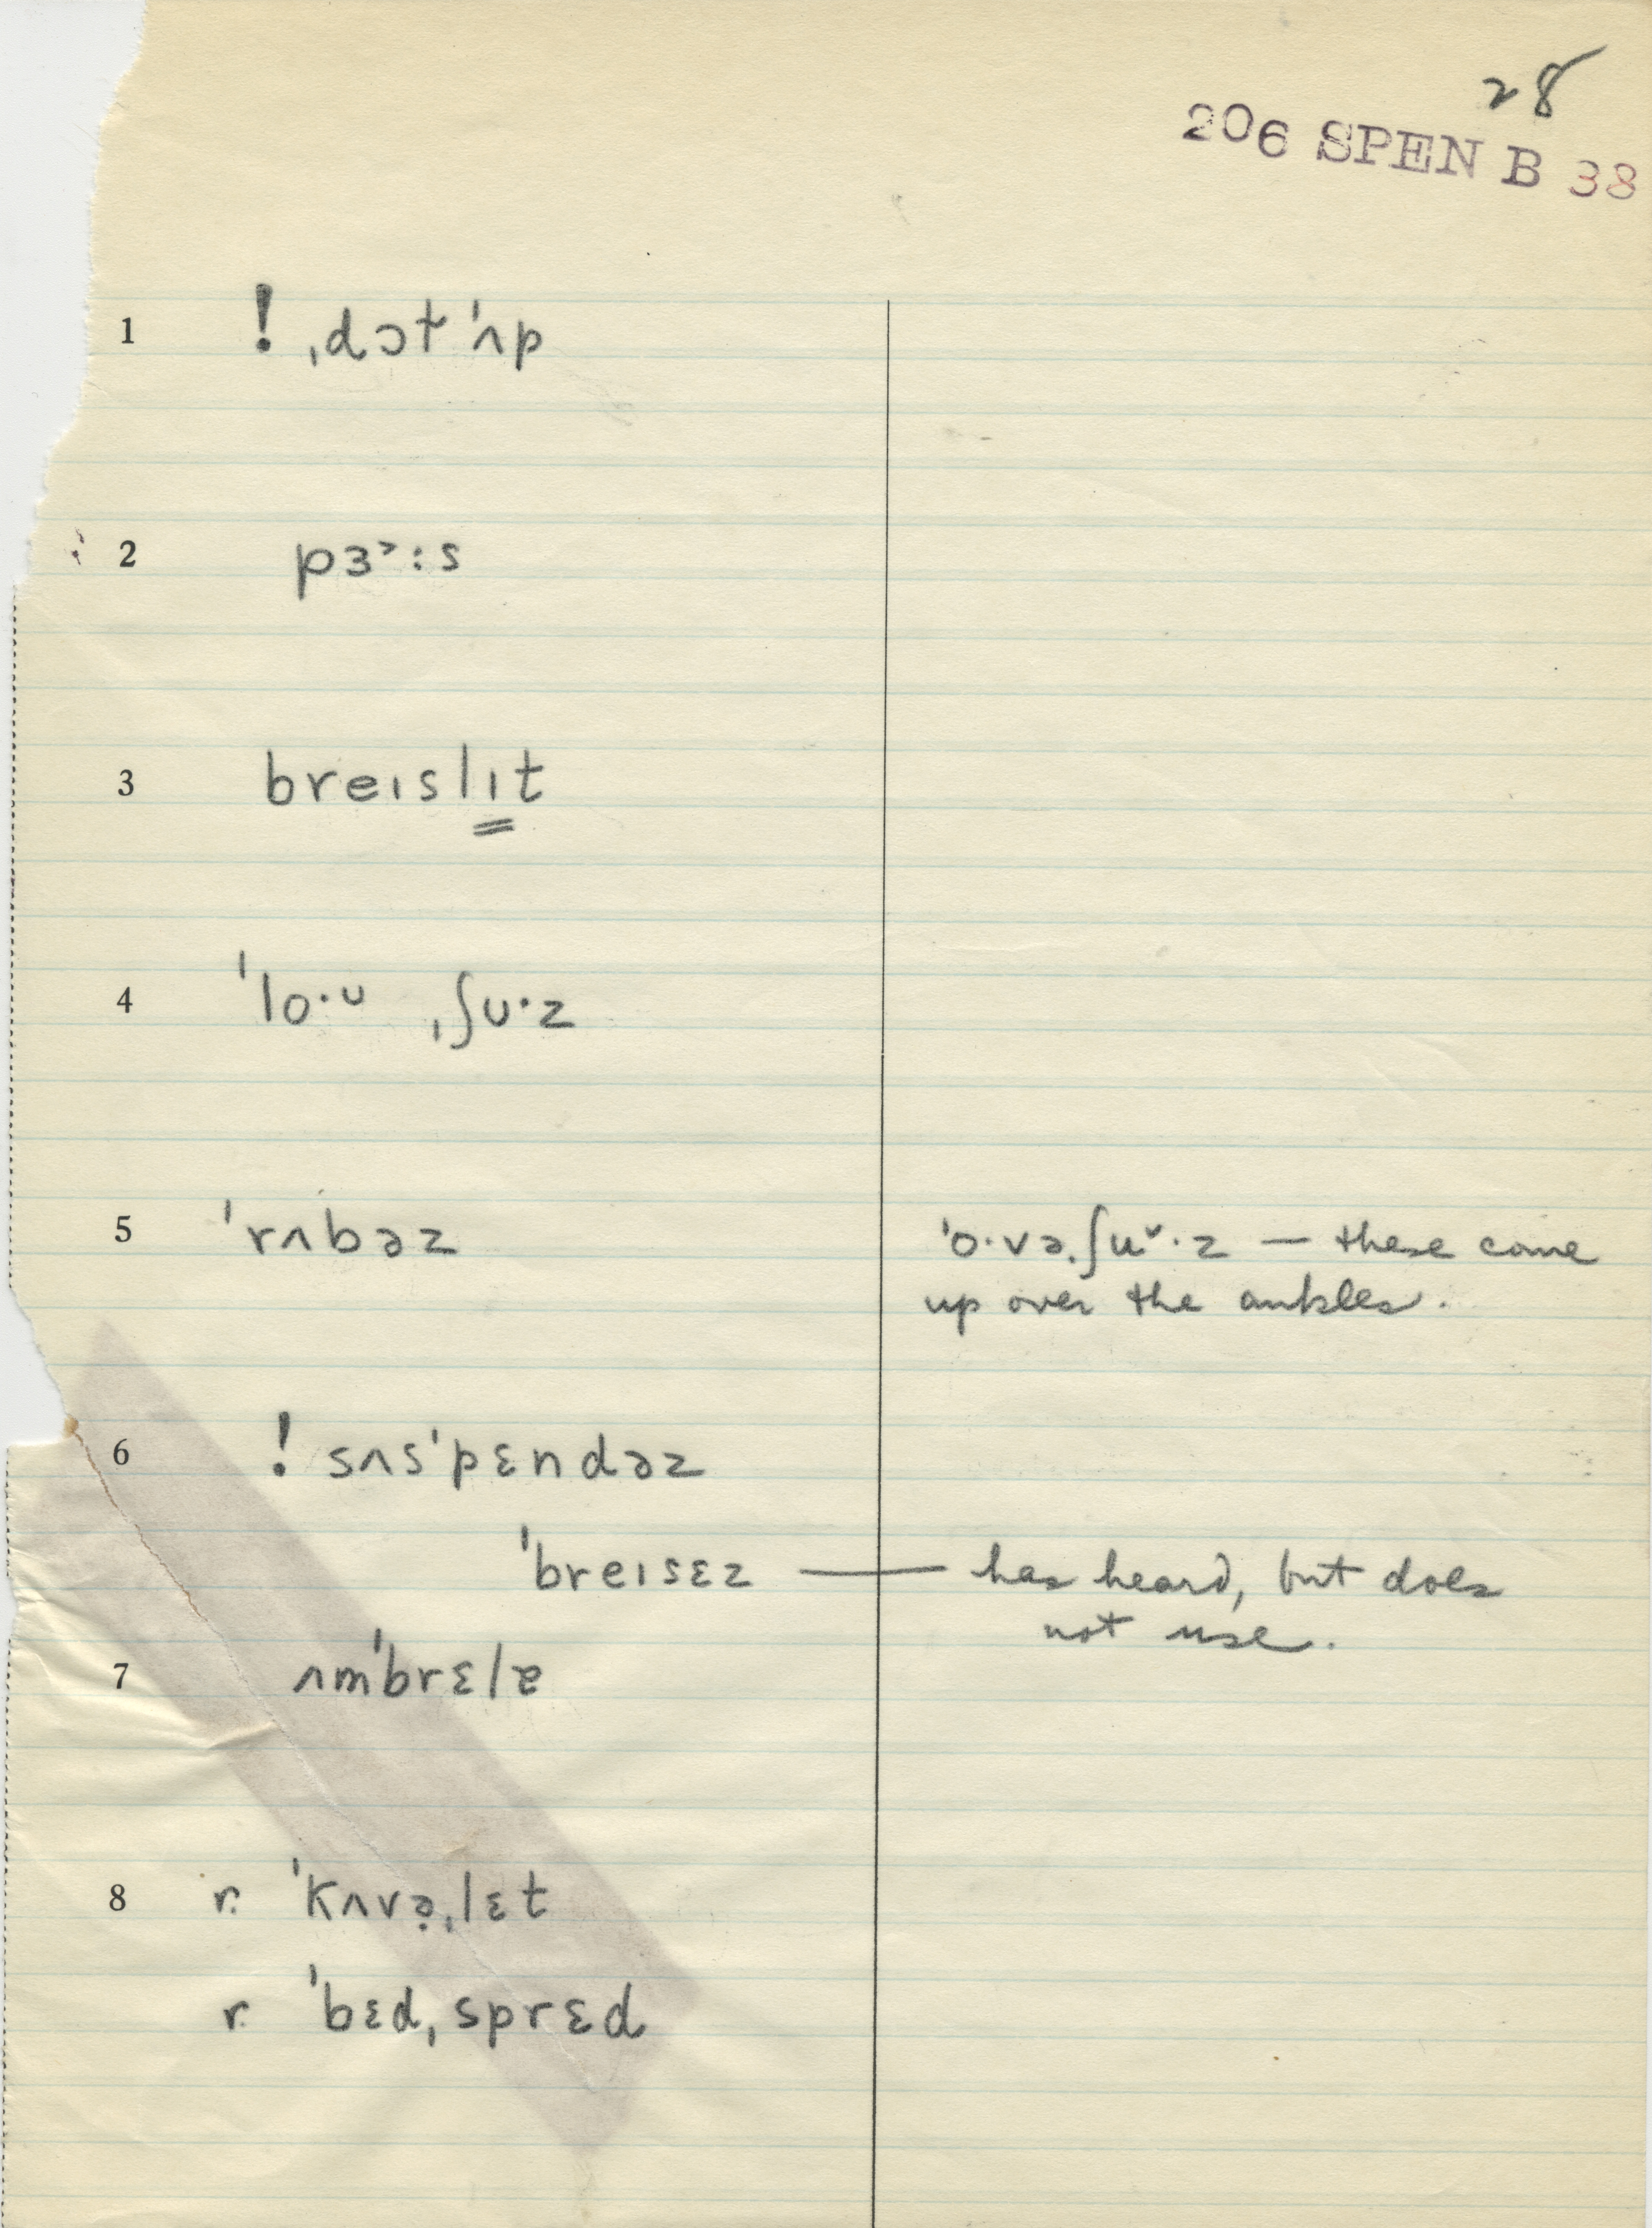 28
206 SPEN B 38
1 ! ˌdɔt ˈʌp
2 pɜ˃:s
3 breɪslɪt
4 ˈlo·ᴜ ˌʃᴜ·z
5 ˈrʌbəz ˈo·vəˌʃuᵛ·z — these come
up over the ankles.
6 ! sʌsˈpɛndəz
ˈbreɪsɛz — has heard, but does
not use.
7 ʌmˈbrɛlɐ
8 r. ˈkʌvə̣ˌlɛt
r. ˈbɛdˌsprɛd